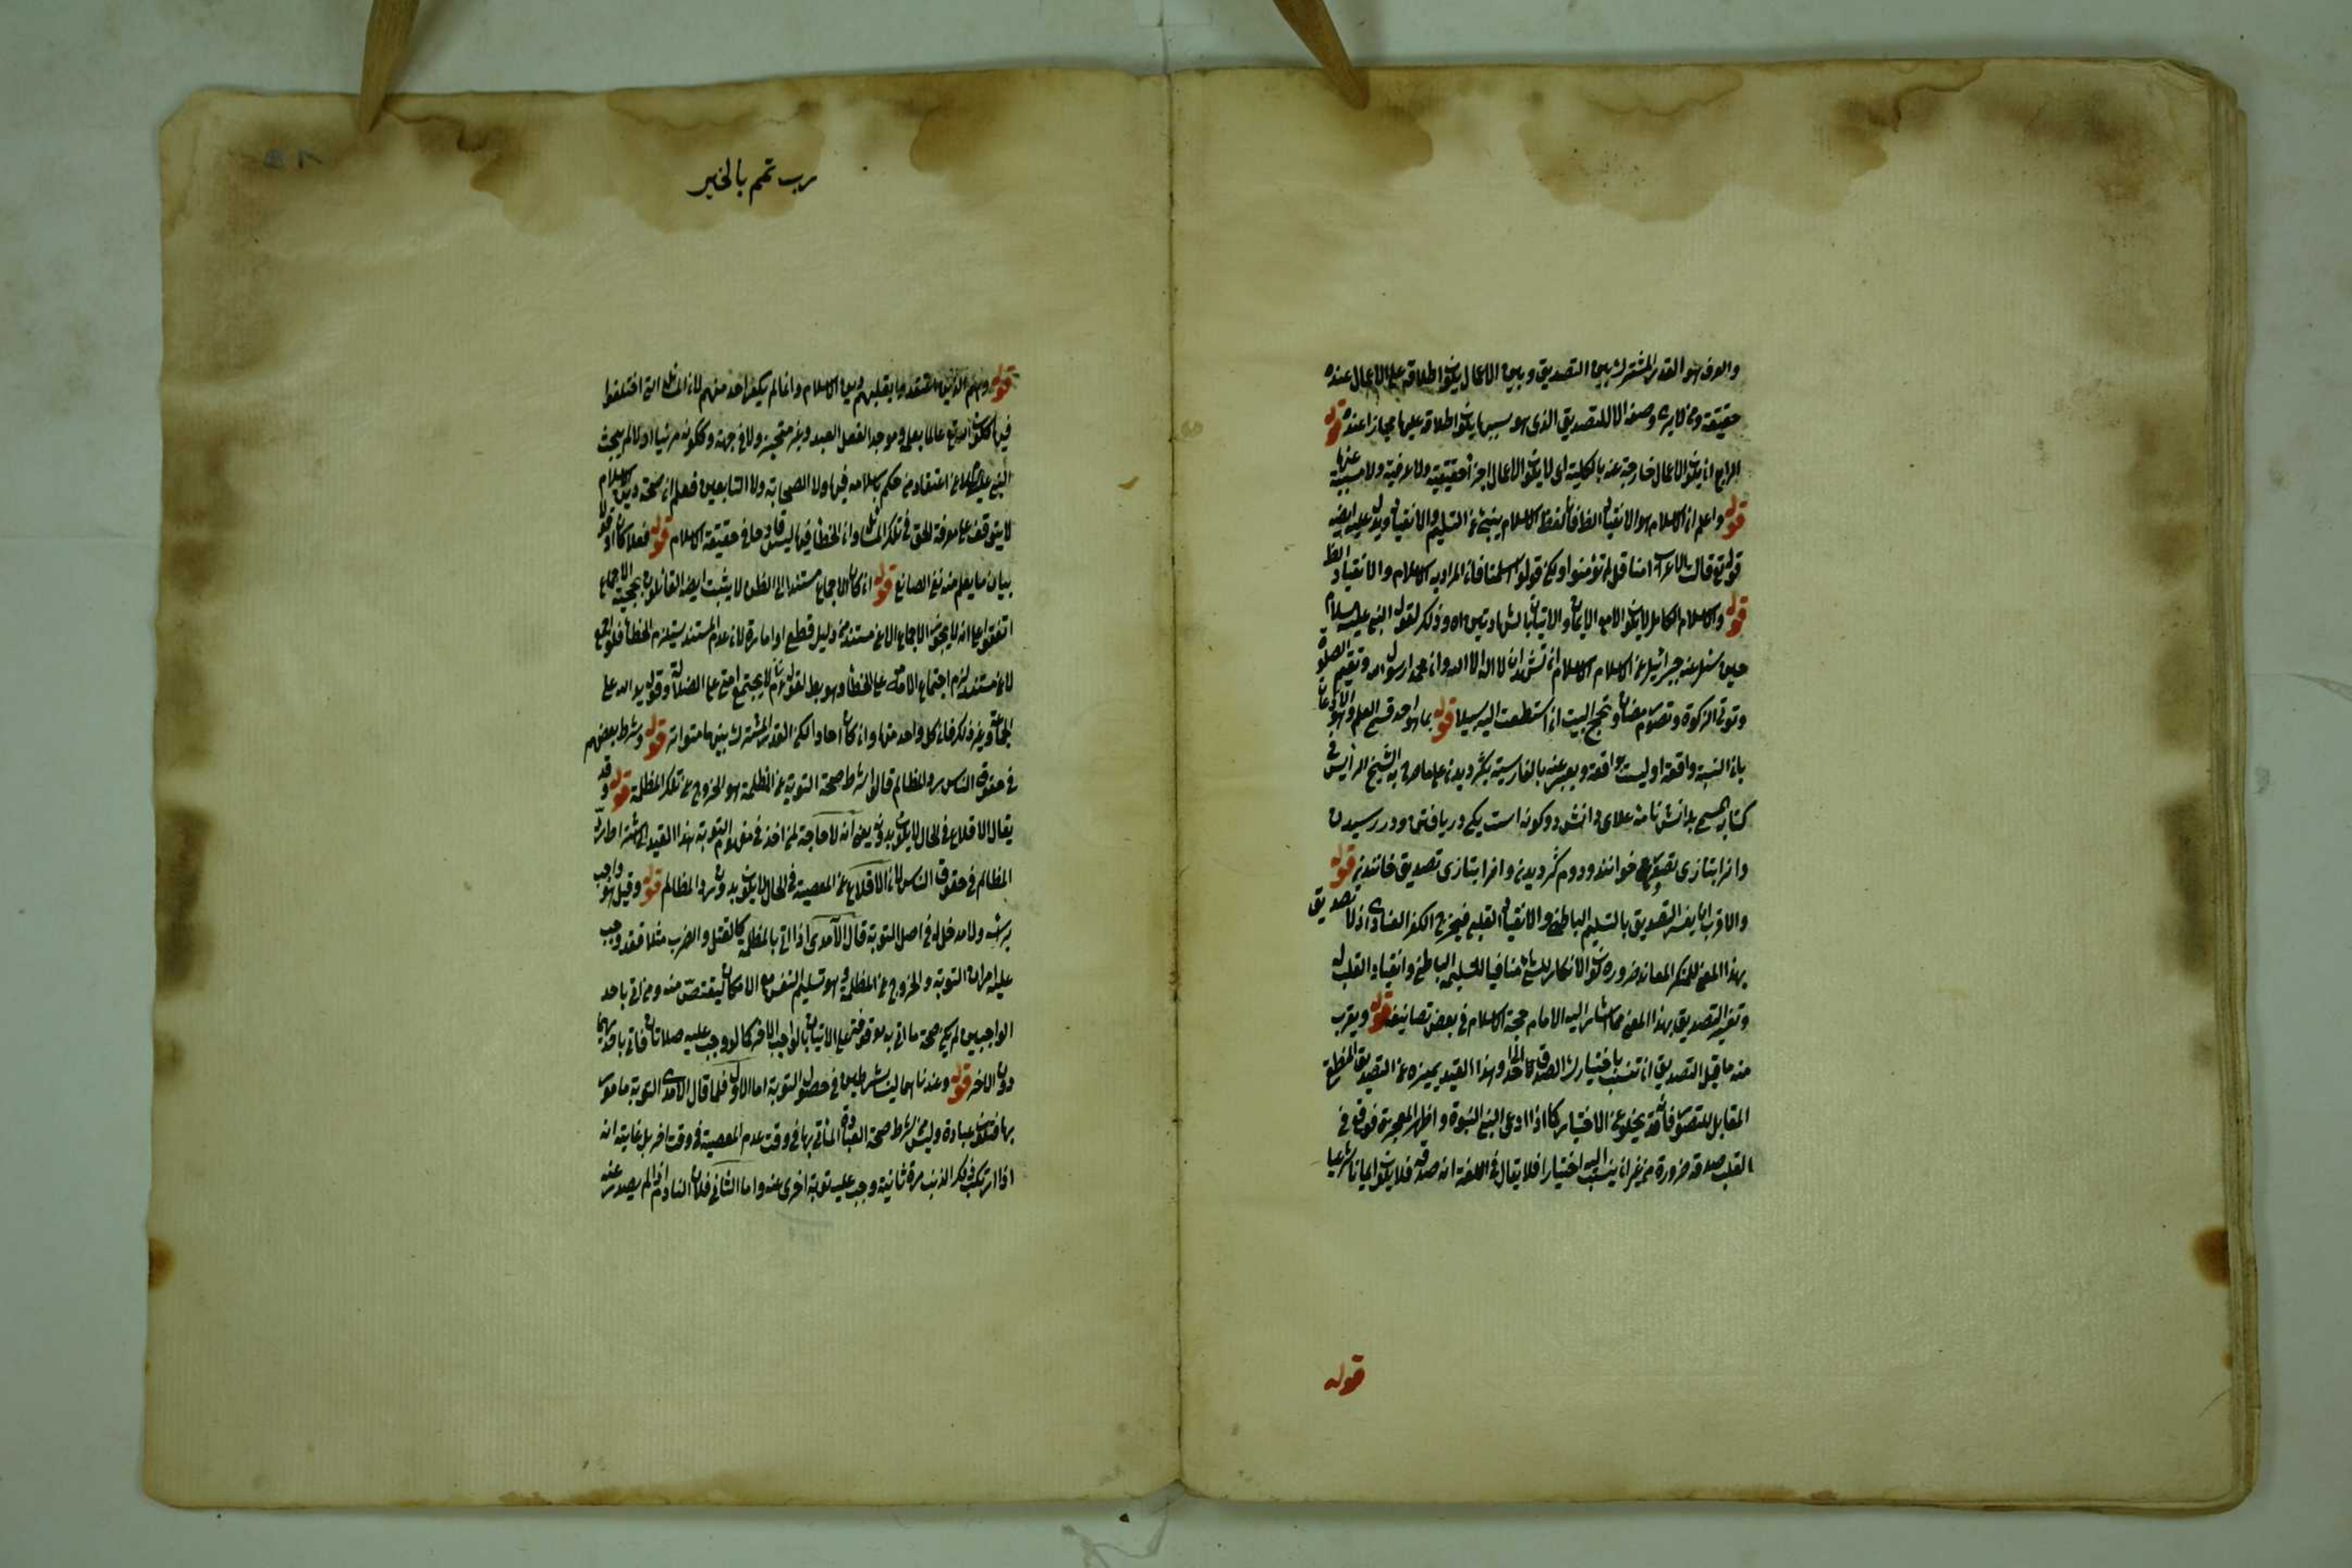 والعرف هو القدر المشترك بين التصديق وبين الاعمال يكون اطلاقه على الاعمال عنده
حقيقة ومن لا يرى وصفه الا للتصديق الذى هو سببها يكون اطلاقه عليها مجازا عنده قوله
الرابع ان يكون الاعمال خارجة عنه بالكلية اى لا يكون الاعمال اجزاء حقيقية ولا عرفية ولا مسببة عنها
قوله واعلم ان الاسلام هو الانقياد الظ فان لفظ الاسلام ينبئ عن التسليم والانقياد ويدل عليه ايضه
قوله تع قالت الاعراب امنا قل لم تؤمنوا ولكن قولوا اسلمنا فان المراد به الاسلام والانقياد الظ
قوله والاسلام الكامل لا يكون الا مع الايمان والاتيان بالشهادتين اه وذلك لقول النبي عليه السلام
حين سئل عنه جبرائيل عن الاسلام الاسلام ان تشهد ان لا اله الا الله وان محمدا رسول الله وتقيم الصلوة
وتوتي الزكوة وتصوم رمضان وتحج البيت ان استطعت اليه سبيلا قوله بما هو احد قسمي العلم وهو الاذعان
بان النسبة واقعة او ليست بواقعة ويعبر عنه بالفارسية بگرويدن على ما صرح به الشيخ الرئيس في
كتابه المسمى بدانش نامه علاى دانش دو گونه است يكى دريافتن ودر رسيدن
وانرا بتازى تصور خوانند ودوم گرويدن وانرا بتازى تصديق خوانند قوله
والاقرب ان يفسر التصديق بالتسليم الباطني والانقياد القلبي فيخرج الكفر العنادى اذ لا تصديق
بهذا المعنى للمنكر المعاند ضرورة كون الانكار باللسان منافيا للتسليم الباطني وانقياد القلب له
وتفسير التصديق بهذا المعنى مما اشار اليه الامام حجة الاسلام في بعض تصانيفه قوله ويقرب
منه ما قيل التصديق ان تنسب باختيارك الصدق الى احد وهذا القيد يميزه عن التصديق المنطقي
المقابل للتصور فانه قد يخلو عن الاختيار كما اذا ادعى النبي النبوة واظهر المعجزة فوقع في
القلب صدقه ضرورة من غير ان ينسب اليه اختيارا فلا يقال في اللغة انه صدقه فلا يكون ايمانا شرعيا
قوله
رب تمم بالخير
قوله وهم الذين اعتقدوا بقلبهم دين الاسلام وانما لم يكفر احد منهم لان المسائل التي اختلفوا
فيها ككون الله تع عالما بعلم وموجدا لفعل العبد وغير متحيز ولا في جهة وككونه مرئيا او لا لم يبحث
النبي عليه السلام عن اعتقاد من حكم باسلامه فيها ولا الصحابة ولا التابعين فعلم ان صحة دين الاسلام
لا يتوقف على معرفة الحق في تلك المسائل وان الخطأ فيها ليس قادحا في حقيقة الاسلام قوله
بيان ما يعلم منه نفي الصانع قوله ان كان الاجماع مستندا الى الظن لا يثبت ايضه القائلون بحجية الاجماع
اتفقوا على انه لا يجوز الاجماع الا عن مستند من دليل قطعي او امارة لان عدم المستند يستلزم الخطأ فلو اجمع
لا عن مستند لزم اجتماع الامة على الخطأ وهو بط لقوله لا يجتمع امتي على الضلالة وقوله يد الله على
الجماعة وغير ذلك فان كل واحد منها وان كان احادا لكن القدر المشترك بينها متواتر قوله وشرط بعضهم
في حقوق الناس رد المظالم قالوا شرط صحة التوبة عن المظلمة هو الخروج عن تلك المظلمة قوله وقد
يقال الاقلاع في الحال لا يكون بدونه يعنى انه لا حاجة لمن اخذ في مفهوم التوبة هذا القيد الى اشتراط رد
المظالم في حقوق الناس لان الاقلاع عن المعصية في الحال لا يكون بدون رد المظالم قوله وقيل هو واجب
برأسه ولا مدخل له في اصل التوبة قال الآمدى اذا اتى بالمظلمة كالقتل والضرب مثلا فقد وجب
عليه امران التوبة والخروج عن المظلمة وهو تسليم النفس مع الامكان ليقتص منه ومن اتى باحد
الواجبين لم يكن صحة ما اتى به موقوفة على الاتيان بالواجب الاخر كما لو وجب عليه صلاتان فاتى باحديهما
دون الاخر قوله وعندنا هما ليسا بشرطين في حصول التوبة اما الاول فلما قال الامدى التوبة مامور
بها فتكون عبادة وليس من شرط صحة العبادة الماتي بها في وقت عدم المعصية في وقت اخر بل غايته انه
اذا ارتكب ذلك الذنب مرة ثانية وجب عليه توبة اخرى عنه واما الثاني فلان النادم اذا لم يصدر عنه